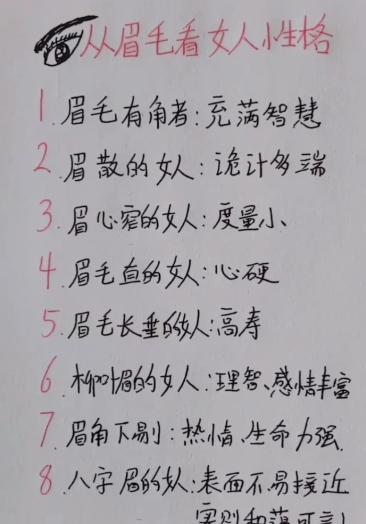 从眉毛看女人小性格
1.眉毛有角者:充满智慧
2.眉散的女人:诡计多端
3.眉心窄的女人:度量小
4.眉毛直的女人:心硬
5.眉毛长垂的女人:高寿
6.柳叶眉的女人:理智、感情丰富
7.眉角下剔:热情、生命力强
8.八字眉的女人:表面不易接近
实则和蔼可亲